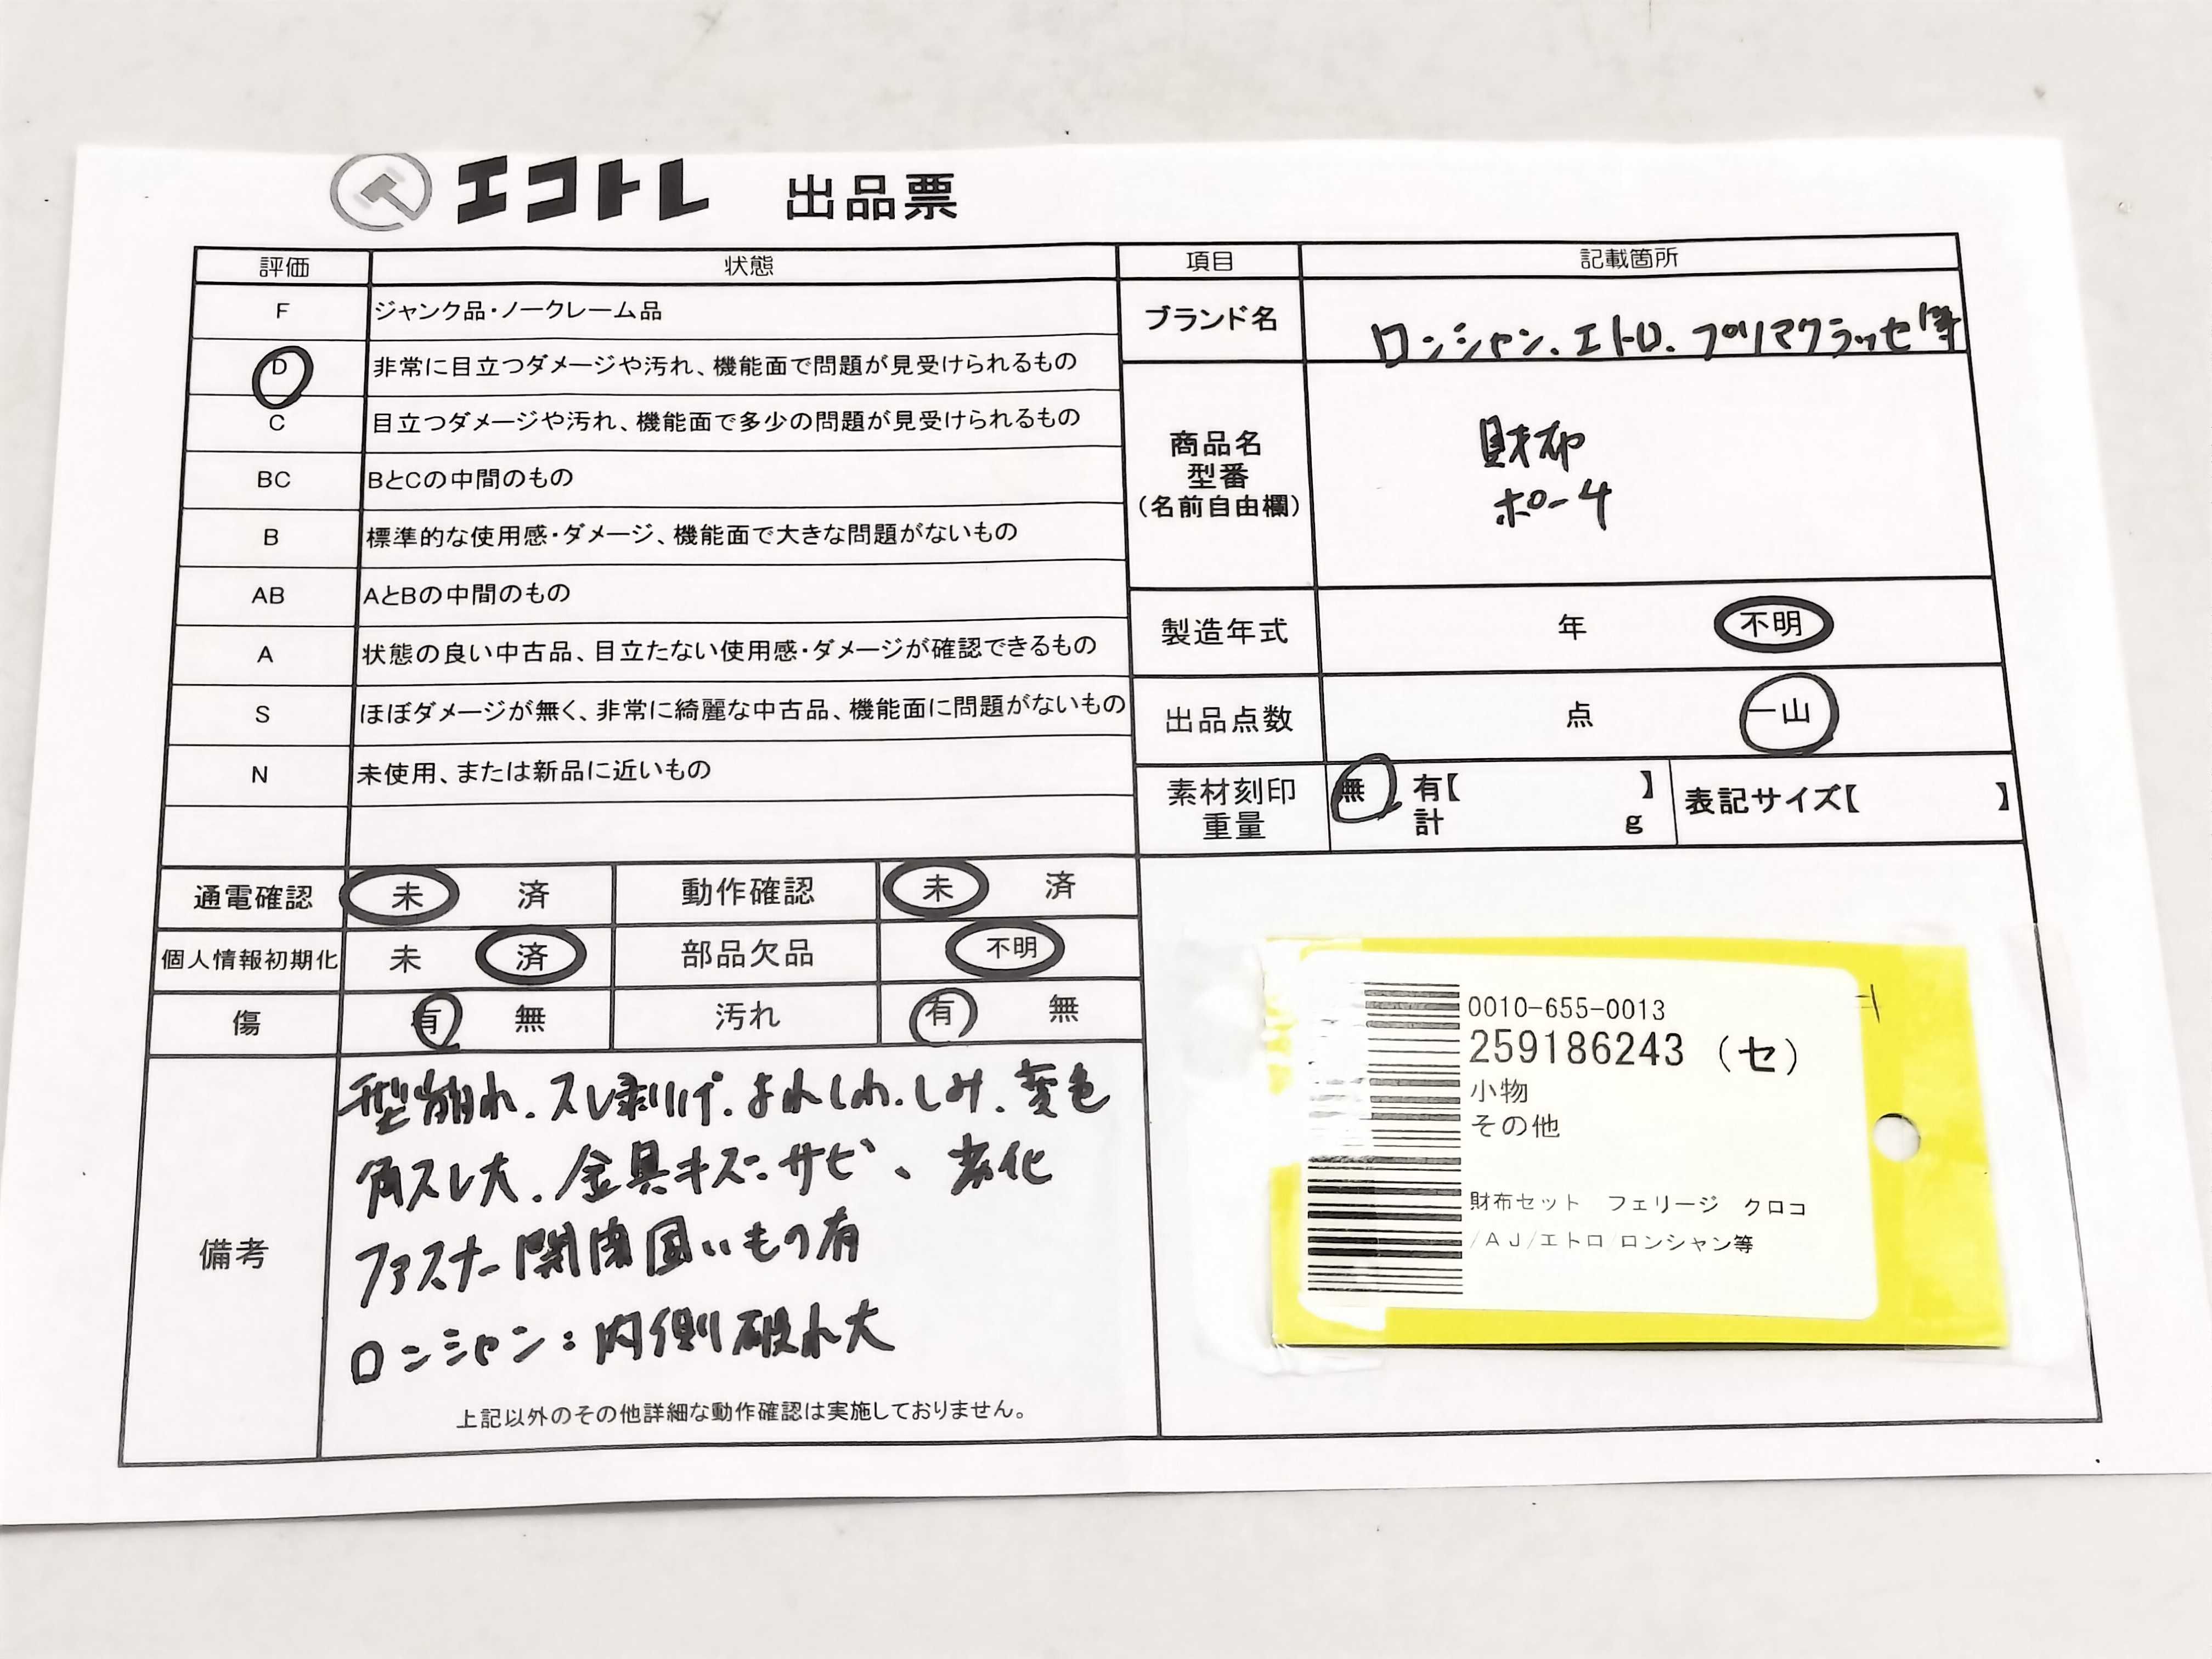 エコトレ 出品票
評価 状態
F ジャンク品・ノークレーム品
D 非常に目立つダメージや汚れ、機能面で問題が見受けられるもの
C 目立つダメージや汚れ、機能面で多少の問題が見受けられるもの
BC BとCの中間のもの
B 標準的な使用感・ダメージ、機能面で大きな問題がないもの
AB AとBの中間のもの
A 状態の良い中古品、目立たない使用感・ダメージが確認できるもの
S ほぼダメージが無く、非常に綺麗な中古品、機能面に問題がないもの
N 未使用、または新品に近いもの
通電確認 未 済 動作確認 未 済
個人情報初期化 未 済 部品欠品 不明
傷 有 無 汚れ 有 無
備考
型崩れ.スレ剥げ.よれしわ.しみ.変色
角スレ大.金具キズ:サビ、劣化
ファスナー開閉固いもの有
ロンシャン:内側破れ大
上記以外のその他詳細な動作確認は実施しておりません。
項目 記載箇所
ブランド名 ロンシャン.エトロ.プリマクラッセ等
商品名
型番
(名前自由欄)
財布
ポーチ
製造年式 年 不明
出品点数 点 一山
素材刻印 無 有【 】 表記サイズ【 】
重量 計 g
0010-655-0013
259186243 (セ)
小物
その他
財布セット フェリージ クロコ
/AJ/エトロ/ロンシャン等